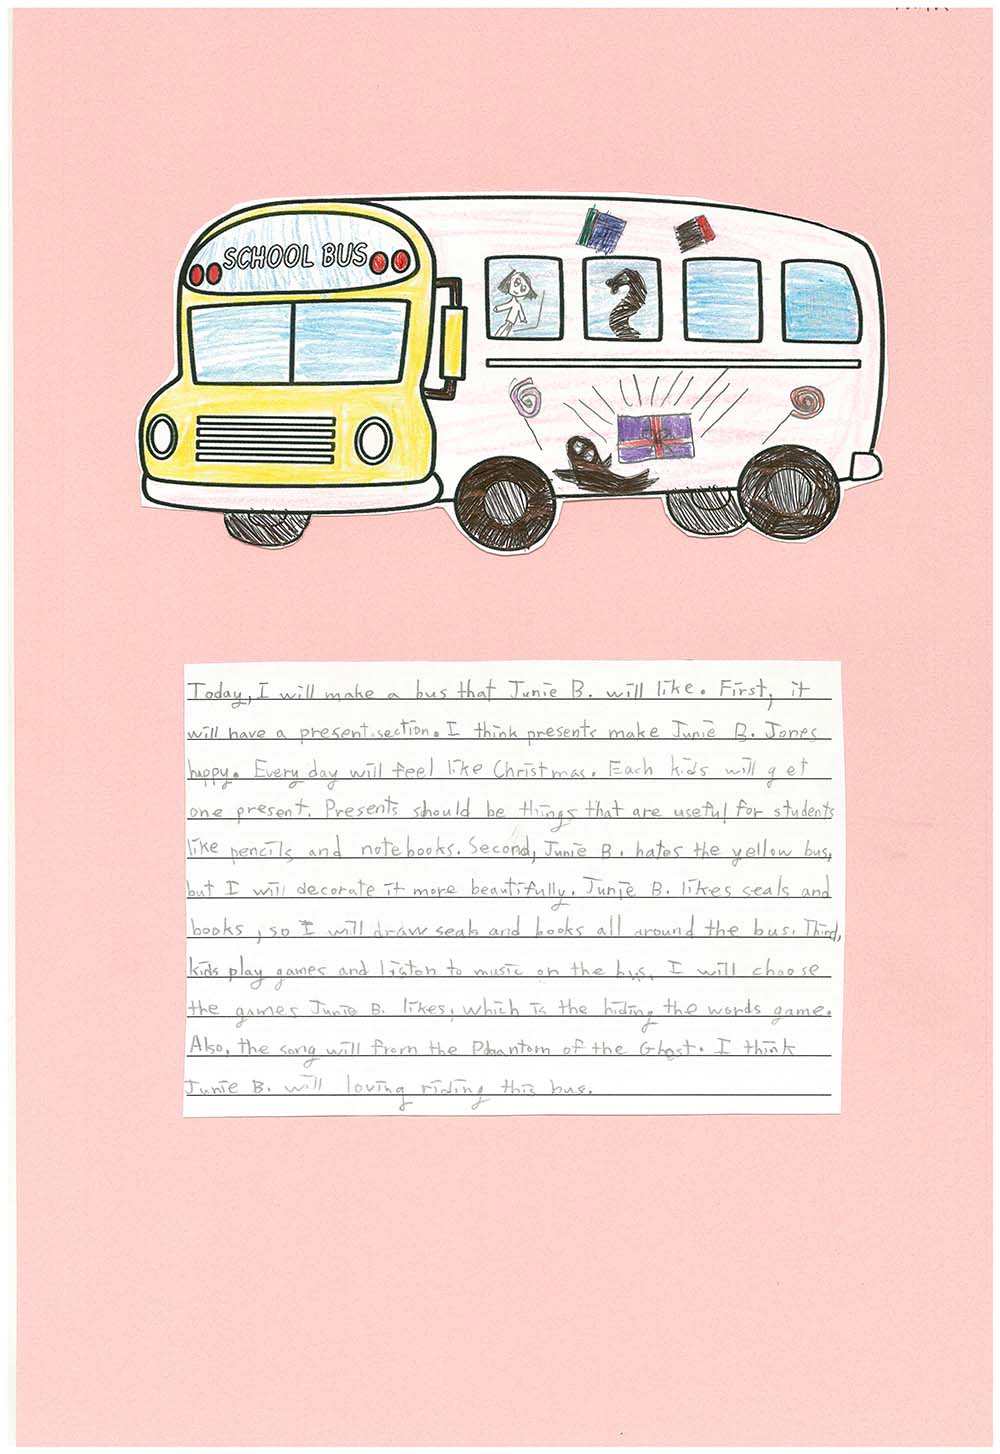 SCHOOL BUS
Today, I will make a bus that Junie B. will like. First, it
will have a present section. I think presents make Junie B. Jones
happy. Every day will feel like Christmas. Each kids will get
one present. Presents should be things that are useful for students
like pencils and notebooks. Second, Junie B. hates the yellow bus,
but I will decorate it more beautifully. Junie B. likes seals and
books, so I will draw seals and books all around the bus. Third,
kids play games and liston to music on the bus. I will choose
the games Junie B. likes, which is the hiding the words game.
Also, the song will from the Phantom of the Ghost. I think
Junie B. will loving riding this bus.